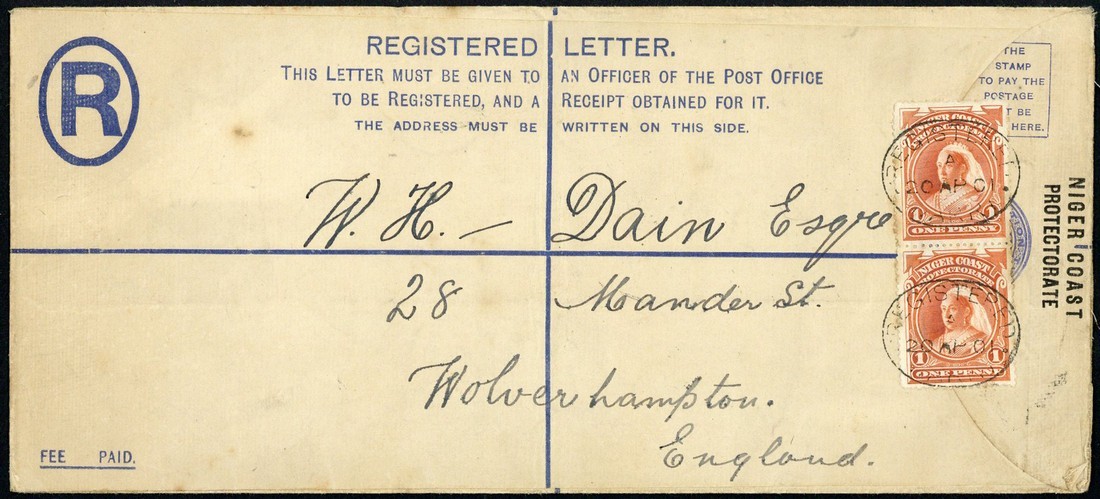 R
REGISTERED LETTER.
THIS LETTER MUST BE GIVEN TO AN OFFICER OF THE POST OFFICE
TO BE REGISTERED, AND A RECEIPT OBTAINED FOR IT.
THE ADDRESS MUST BE WRITTEN ON THIS SIDE.
THE
STAMP
TO PAY THE
POSTAGE
T BE
HERE.
W. H. – Dain Esqre
28 Mander St.
Wolverhampton.
England.
FEE PAID.
NIGER COAST
PROTECTORATE
1 1
ONE PENNY
REGISTERED
A
20 AP 01
NIGER COAST
PROTECTORATE
1 1
ONE PENNY
REGISTERED
20 AP 01
NIGER COAST
PROTECTORATE